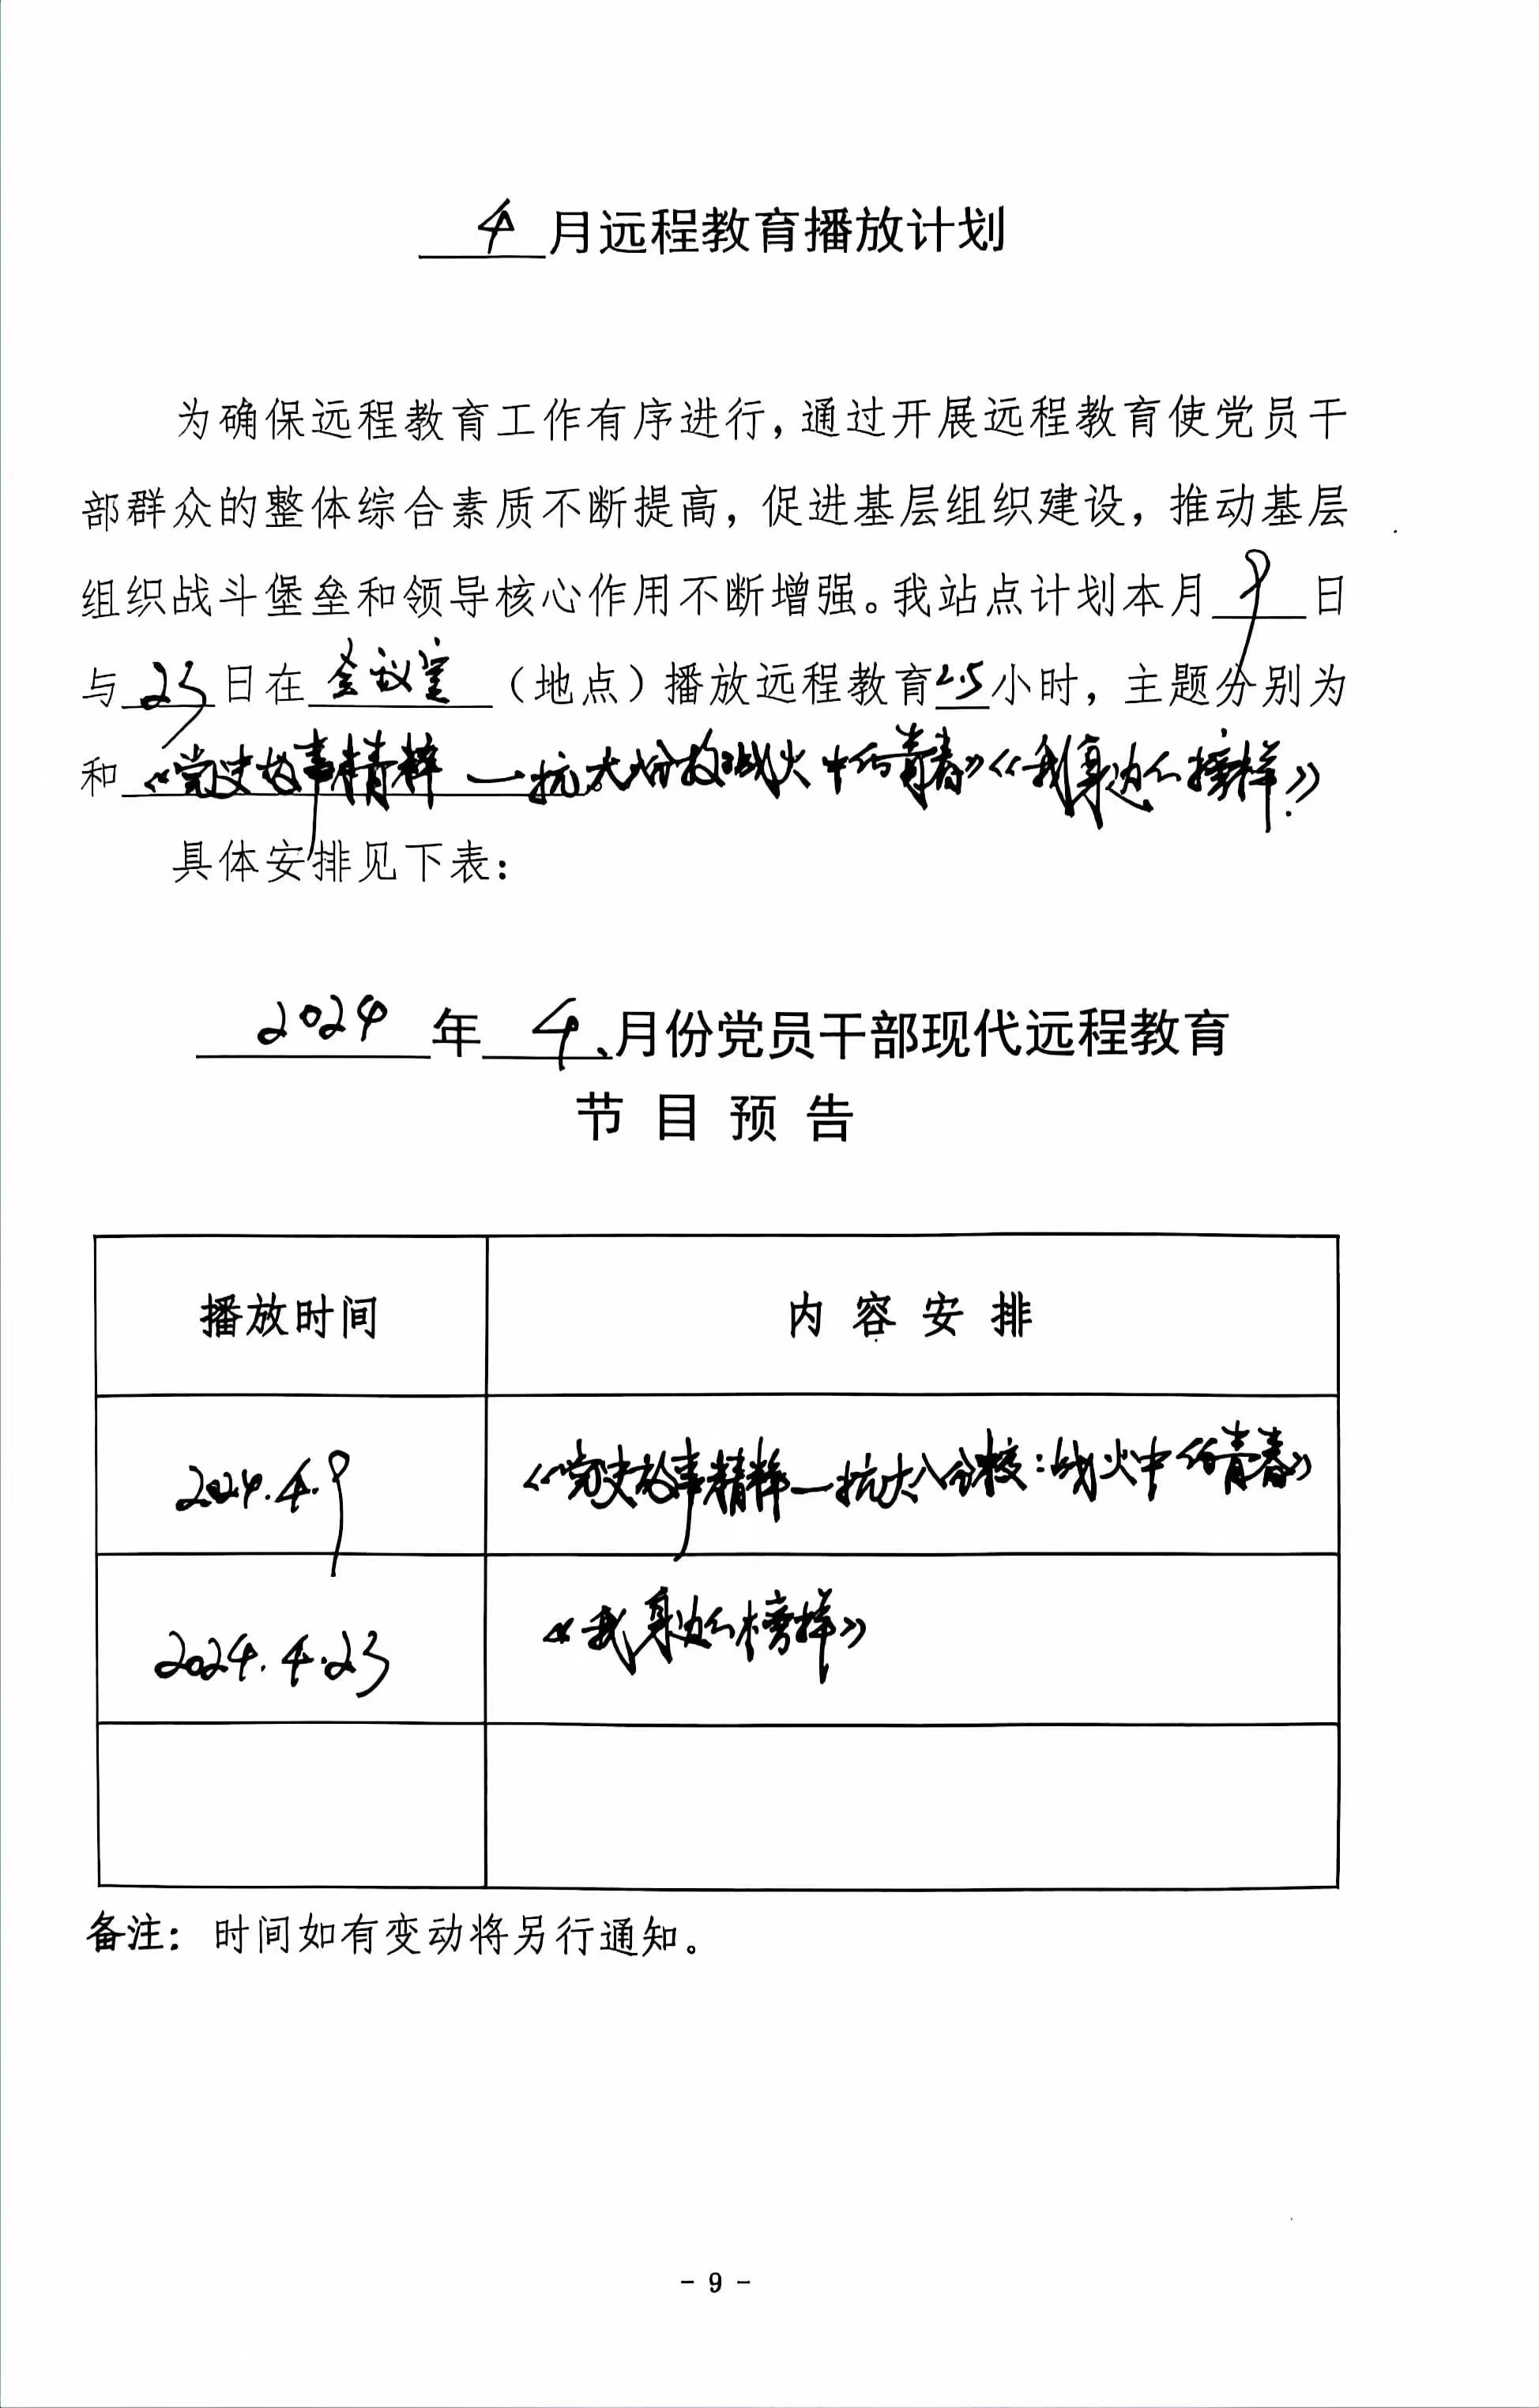 4月远程教育播放计划
为确保远程教育工作有序进行，通过开展远程教育使党员干
部群众的整体综合素质不断提高，促进基层组织建设，推动基层
组织战斗堡垒和领导核心作用不断增强。我站点计划本月9日
与23日在会议室（地点）播放远程教育2.5小时，主题分别为
和《党史故事精粹—抗大分校战火中的青春》《我身边的榜样》
具体安排见下表：
2024年4月份党员干部现代远程教育
节目预告
播放时间 内容安排
2024.4.9 《党史故事精粹—抗大八分校：战火中的青春》
2024.4.23 《我身边的榜样》
备注：时间如有变动将另行通知。
- 9 -